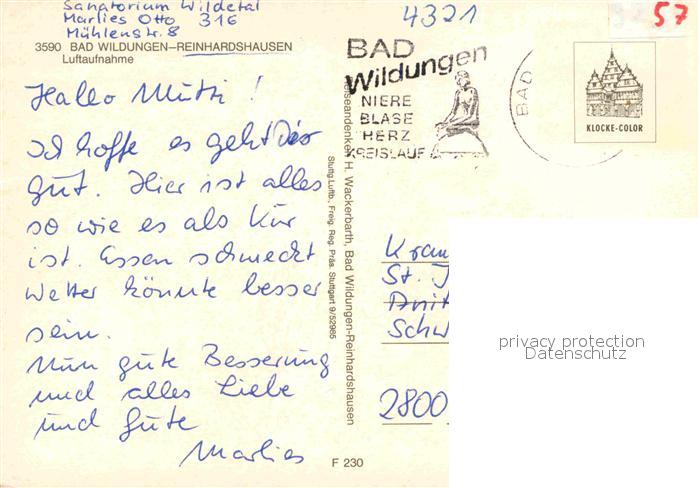 Sanatorium Wildetal
Marlies Otto 316
Mühlenstr. 8
3590 BAD WILDUNGEN-REINHARDSHAUSEN
Luftaufnahme
Hallo Mutti!
Ich hoffe es geht Dir
gut. Hier ist alles
so wie es als Kur
ist. Essen schmeckt
Wetter könnte besser
sein.
Nun gute Besserung
und alles Liebe
und Gute
Marlies
4321
57
BAD
Wildungen
NIERE
BLASE
HERZ
KREISLAUF
BAD
KLOCKE-COLOR
Reiseandenken H. Wackerbarth, Bad Wildungen-Reinhardshausen
Stuttg. Luftb., Freig. Reg. Präs. Stuttgart 9/52985
Kran
St. J
Schw
2800
privacy protection
Datenschutz
F 230